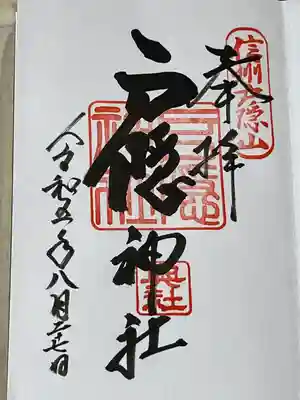 信州戸隠山
奉拝
戸隠神社
戸隠神社
奥社
令和五年八月二十七日